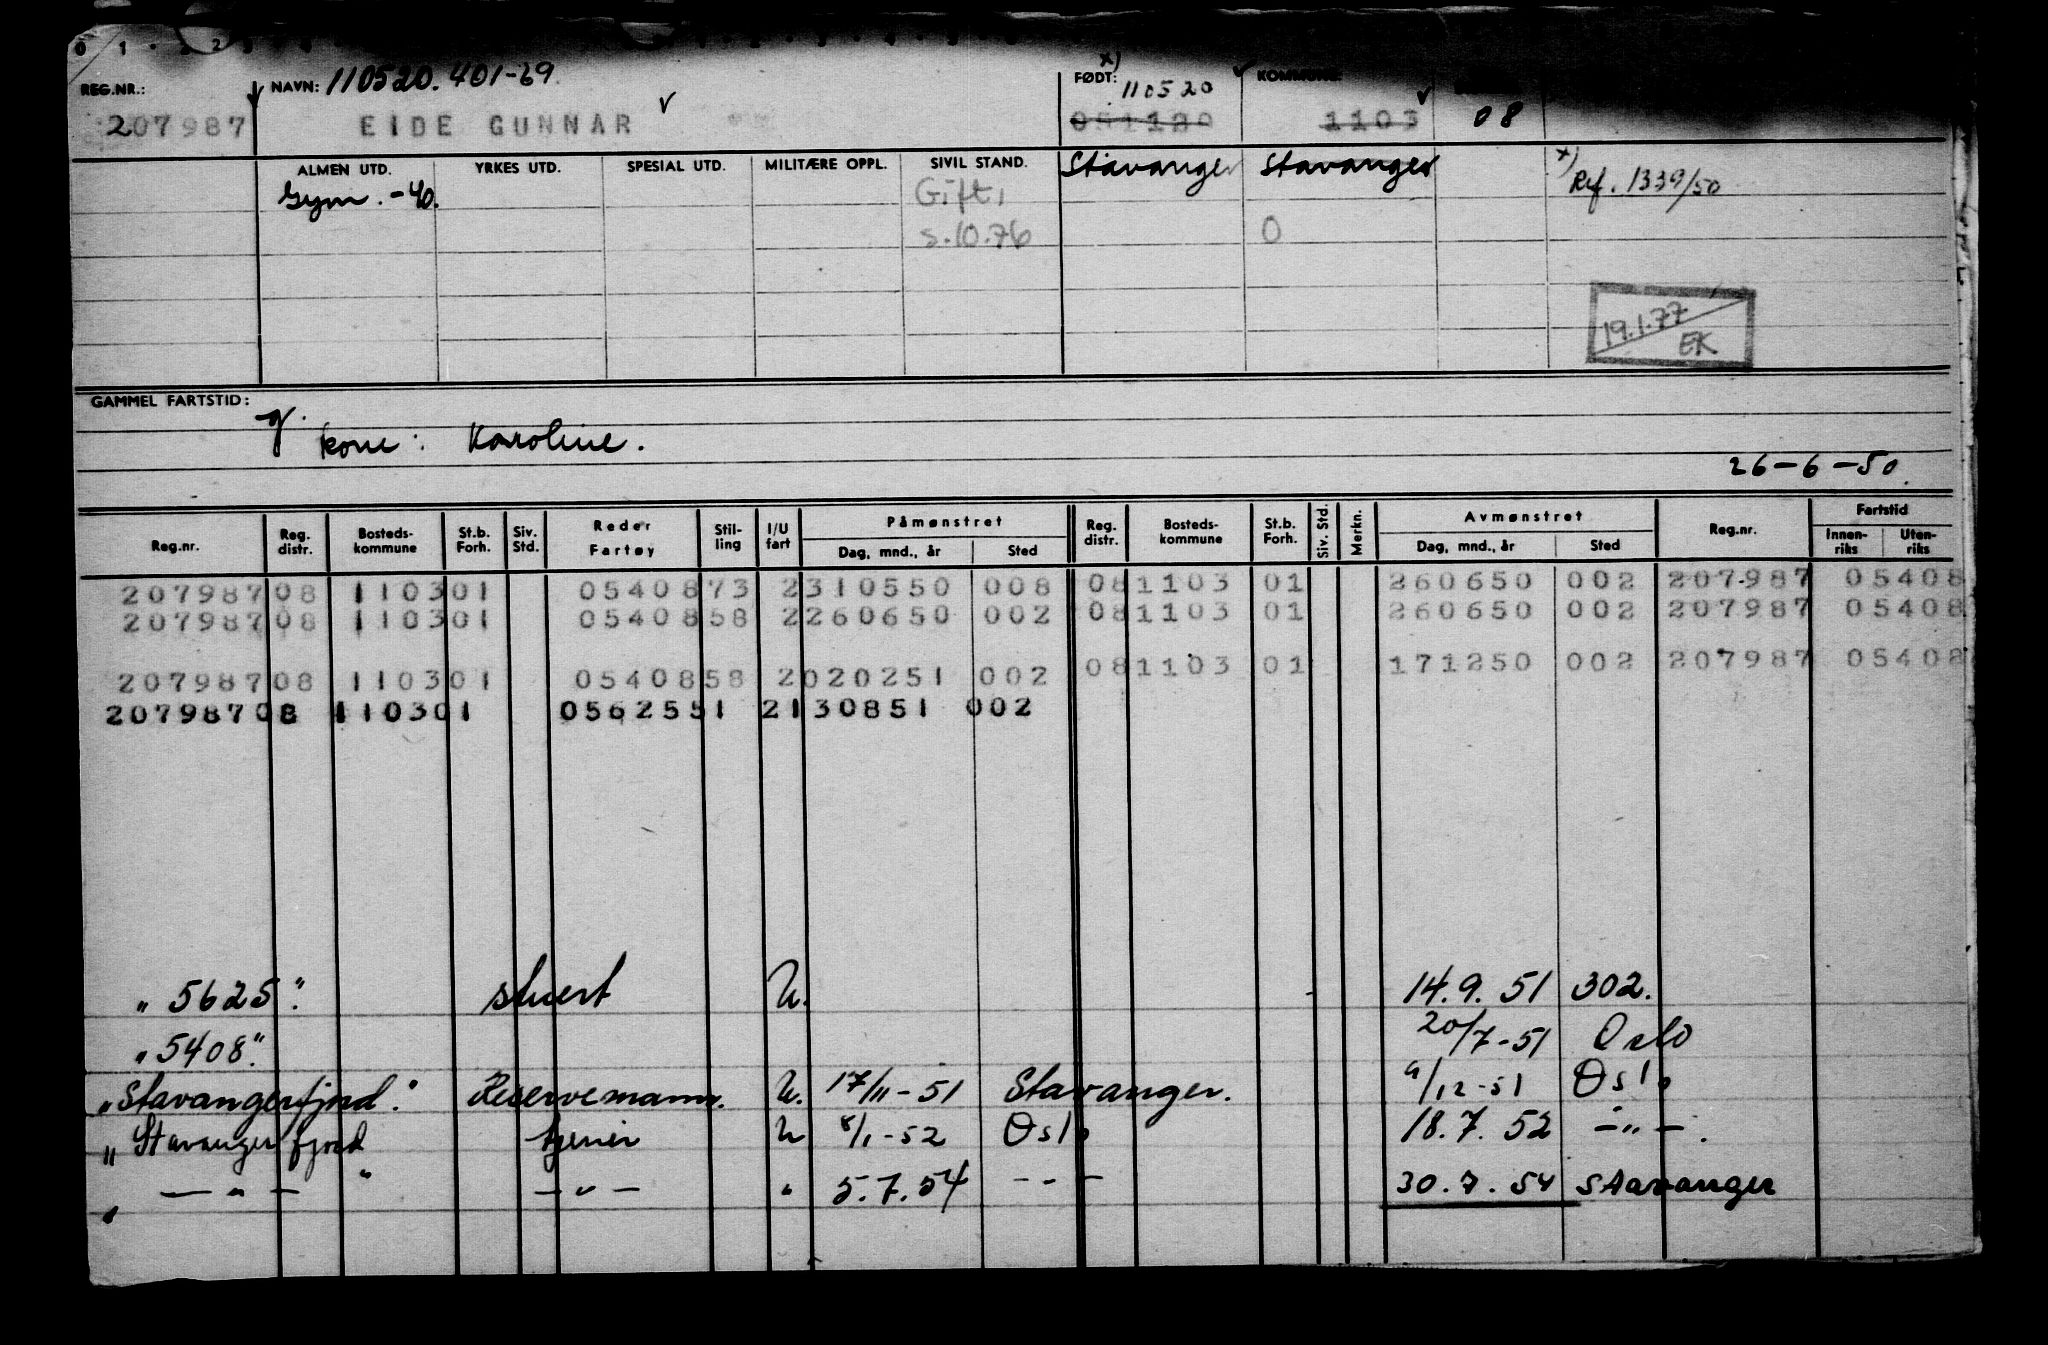 REG.NR.: NAVN: 110520.401-69 FØDT: x) 110520 KOMMUNE:
207987 EIDE GUNNAR 1103 08
ALMEN UTD. YRKES UTD. SPESIAL UTD. MILITÆRE OPPL. SIVIL STAND. Stavanger Stavanger x) Ref. 1339/50
Gym. -40. Gift,
s.10.76 0
19.1.77
EK
GAMMEL FARTSTID:
kone: Karoline.
26-6-50.
Reg.nr. Reg. distr. Bosteds-kommune St.b. Forh. Siv. Std. Reder Fartøy Stil-ling I/U fart Påmønstret Dag, mnd., år Sted Reg. distr. Bosteds-kommune St.b. Forh. Siv. Std. Merkn. Avmønstret Dag, mnd., år Sted Reg.nr. Fartstid Innen-riks Uten-riks
207987 08 1103 01 05408 73 2 310550 008 08 1103 01 260650 002 207987 05408
207987 08 1103 01 05408 58 2 260650 002 08 1103 01 260650 002 207987 05408
08 1103 01 171250 002 207987 05408
207987 08 1103 01 05408 58 2 020251 002
207987 08 1103 01 05625 51 2 130851 002
"5625". stuert U. 14.9.51 302.
"5408". 20/7-51 Oslo
"Stavangerfjord". Reservemann. U. 17/11-51 Stavanger. /12-51 Oslo
"Stavangerfjord tjener U 8/1-52 Oslo 18.7.52 -"-.
" -"- " -"- " 5.7.54 -"- 30.7.54 Stavanger